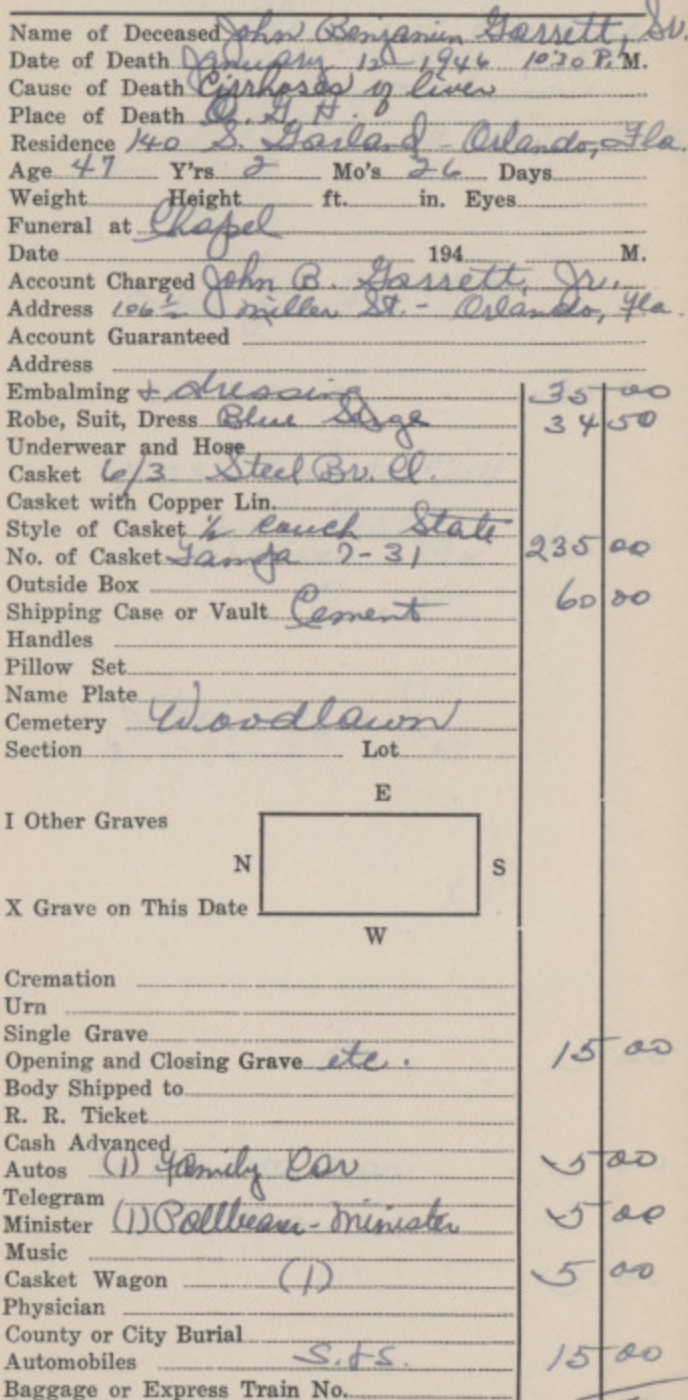 Name of Deceased John Benjamin Garrett, Sr.
Date of Death January 12 1946 10:30 P. M.
Cause of Death Cirrhoses of liver
Place of Death O. G. H.
Residence 140 S. Garland - Orlando, Fla.
Age 47 Y'rs 2 Mo's 26 Days
Weight Height ft. in. Eyes
Funeral at Chapel
Date 194 M.
Account Charged John B. Garrett, Jr.
Address 106 1/2 Miller St. - Orlando, Fla.
Account Guaranteed
Address
Embalming & dressing 35 00
Robe, Suit, Dress Blue Serge 34 50
Underwear and Hose
Casket 6/3 Steel Br. Cl.
Casket with Copper Lin.
Style of Casket 1/2 couch State
No. of Casket Tampa 7-31 235 00
Outside Box
Shipping Case or Vault Cement 60 00
Handles
Pillow Set
Name Plate
Cemetery Woodlawn
Section Lot
E
I Other Graves
N S
X Grave on This Date
W
Cremation
Urn
Single Grave
Opening and Closing Grave etc. 15 00
Body Shipped to
R. R. Ticket
Cash Advanced
Autos (1) Family Car 5 00
Telegram
Minister (1) Pallbearer - Minister 5 00
Music
Casket Wagon (1) 5 00
Physician
County or City Burial
Automobiles S. & S. 15 00
Baggage or Express Train No.